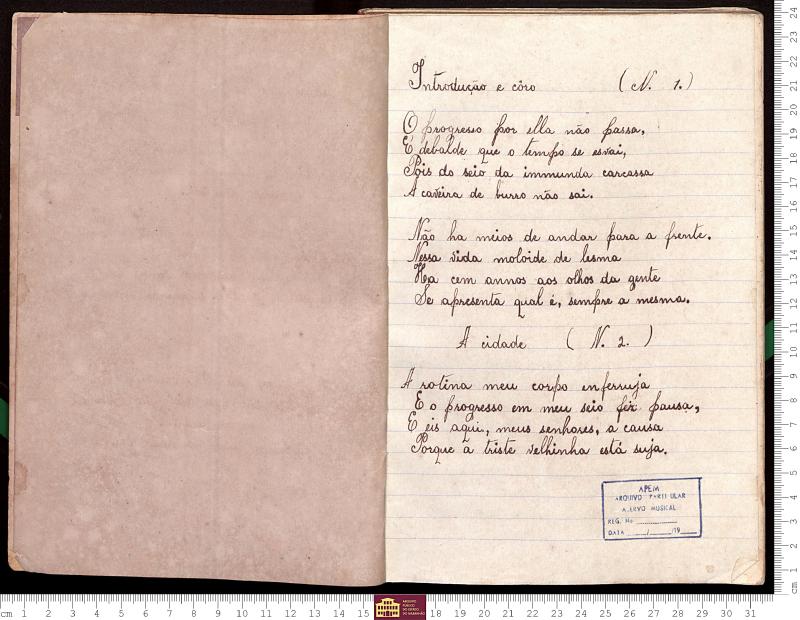 Introdução e côro (N. 1.)
O progresso por ella não passa,
É debalde que o tempo se esvai,
Pois do seio da immunda carcassa
A caveira de burro não sai.
Não ha meios de andar para a frente.
Nessa vida moloide de lesma
Ha cem annos aos olhos da gente
Se apresenta qual é, sempre a mesma.
A cidade (N. 2.)
A rotina meu corpo enferruja
E o progresso em meu seio fez pausa,
E eis aqui, meus senhores, a causa
Porque a triste velhinha está suja.
APEM
ARQUIVO PARTICULAR
ACERVO MUSICAL
REG. No ________
DATA ____/____/19___
ARQUIVO
PÚBLICO
DO ESTADO
DO MARANHÃO
cm 1 2 3 4 5 6 7 8 9 10 11 12 13 14 15 18 19 20 21 22 23 24 25 26 27 28 29 30 31
cm 1 2 3 4 5 6 7 8 9 10 11 12 13 14 15 16 17 18 19 20 21 22 23 24